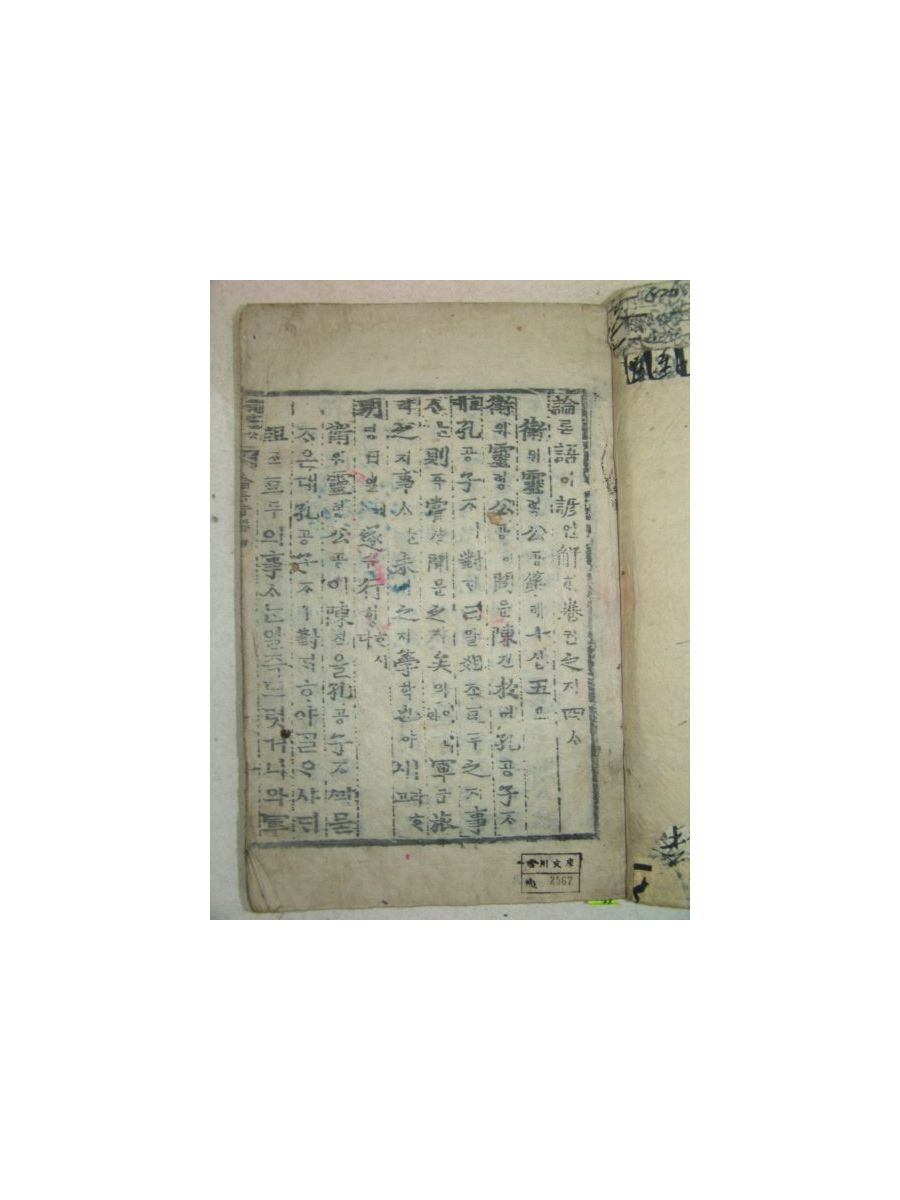 論론語어諺언解ᄒᆡ卷권之지四ᄉᆞ
衛위靈령公공第뎨十십五오
衛위靈령公공이問문陳진於어孔공子ᄌᆞ
孔공子ᄌᆞㅣ對ᄃᆡ曰왈俎조豆두之지事
ᄉᆞᄂᆞᆫ則즉嘗샹聞문之지矣의어니와軍군旅
려之지事ᄉᆞᄂᆞᆫ未미之지學ᄒᆞᆨ也야ㅣ라ᄒᆞ시고
明명日일에遂슈行ᄒᆡᆼᄒᆞ시다
衛위靈령公공이陳진을孔공子ᄌᆞᄭᅴ묻
ᄌᆞ온대孔공子ᄌᆞㅣ對ᄃᆡᄒᆞ야ᄀᆞᆯᄋᆞ샤ᄃᆡ
俎조豆두의事ᄉᆞᄂᆞᆫ일즉드럿거니와軍
2567